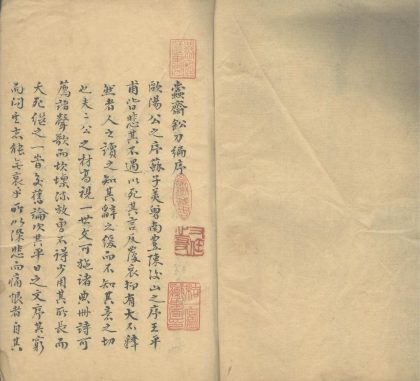 蠹齋鈆刀編序
歐陽公之序蘇子美曾南豐陳後山之序王平
甫皆悲其不遇以死其言反覆哀抑有大不釋
然者人之讀之知其辭之復而不知其哀之切
也夫二公之材高視一世文可施諸典冊詩可
薦諸聲歌而坎壈放不得少用其所長而
夭死繼之一舊論次其平日之文序其窮
而閔其志能無哀乎所以深悲而痛恨者自其